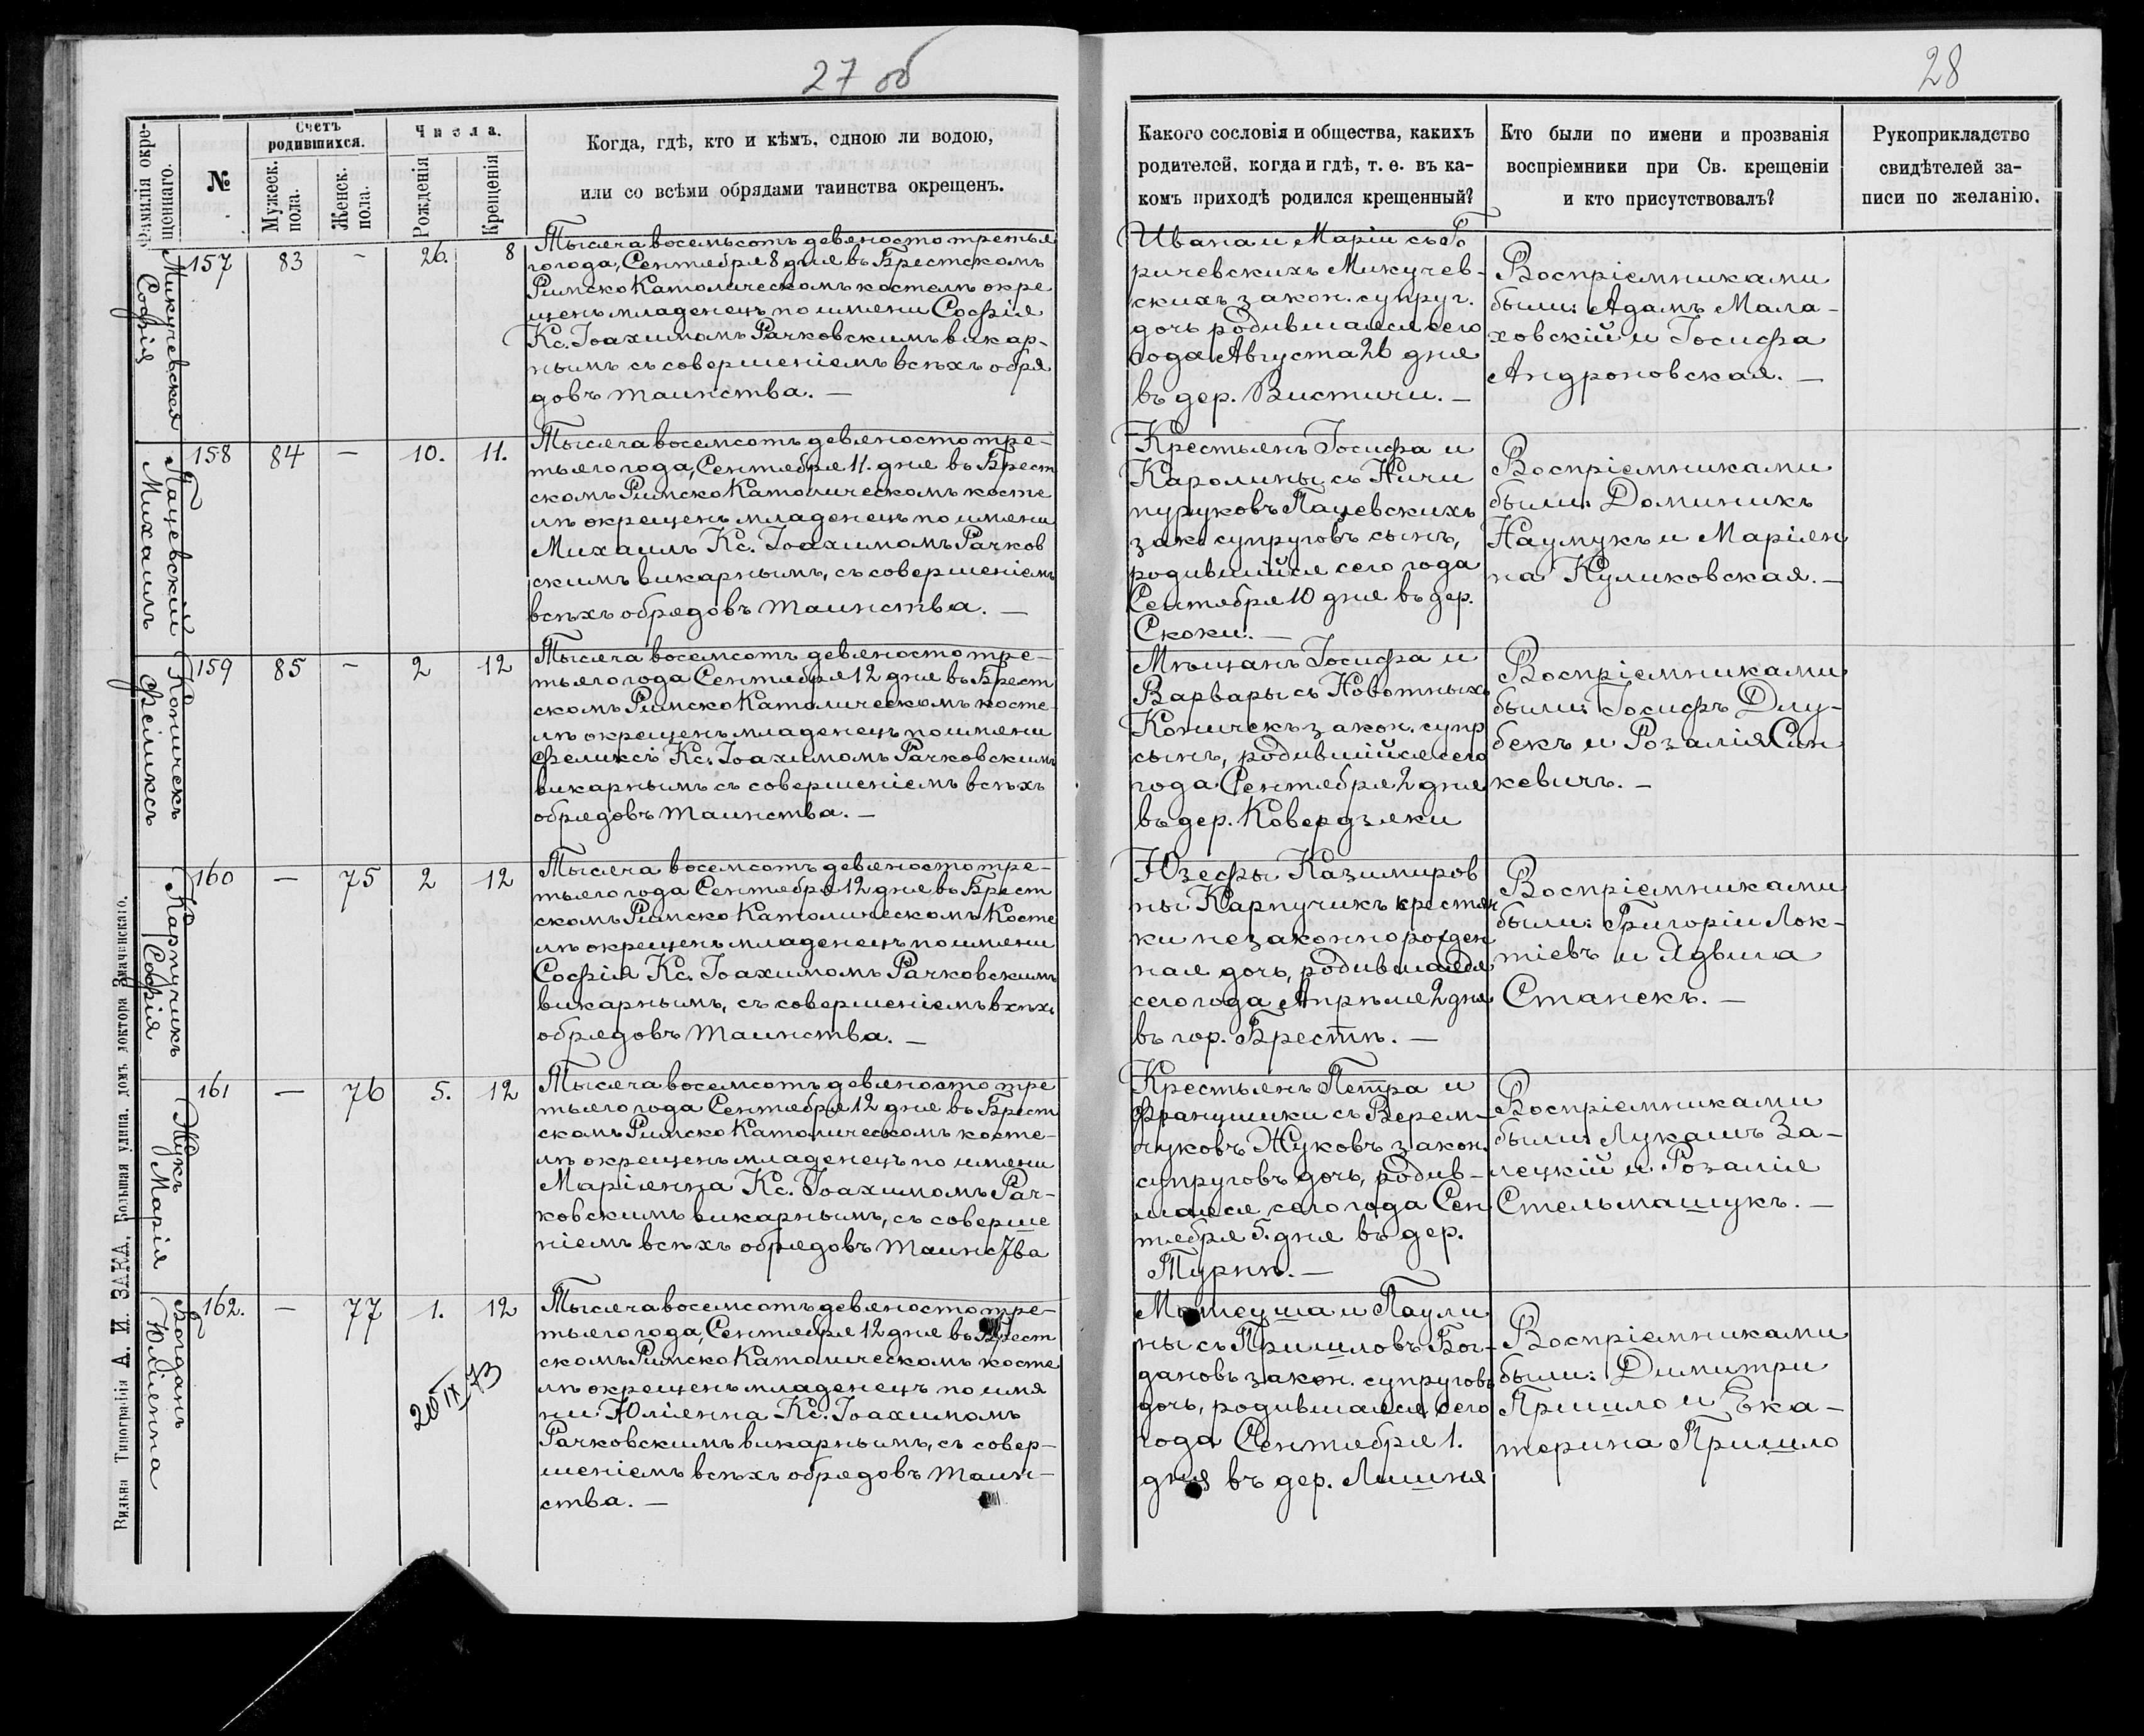 27 об
28
Фамилія окре-
щеннаго.
№
Счетъ
родившихся.
Мужеск.
пола.
Женск.
пола.
Числа.
Рожденія
Крещенія
Когда, гдѣ, кто и кѣмъ, одною ли водою,
или со всѣми обрядами таинства окрещенъ.
Какого сословія и общества, какихъ
родителей, когда и гдѣ, т. е. въ ка-
комъ приходѣ родился крещенный?
Кто были по имени и прозванія
воспріемники при Св. крещеніи
и кто присутствовалъ?
Рукоприкладство
свидѣтелей за-
писи по желанію.
Микучевская
Софія
157 83 - 26. 8
Тысяча восемьсотъ девяносто третья
го года, Сентября 8 дня въ Брестскомъ
Римско Католическомъ костелѣ окре
щенъ младенецъ по имени Софія
Кс. Іоахимомъ Рачковскимъ викар-
нымъ съ совершеніемъ всѣхъ обря
довъ таинства. —
Ивана и Маріи съ
ричевскихъ Микучев-
скихъ закон. супруг.
дочь родившаяся сего
года Августа 26 дня
въ дер. Вистичи. —
Воспріемниками
были: Адамъ Мала-
ховскій и Іосифа
Андроновская. —
Пацевскій
Михаилъ
158 84 — 10. 11.
Тысяча восемсотъ девяносто тре-
тьяго года, Сентября 11. дня въ Брест
скомъ Римско Католическомъ косте
лѣ окрещенъ младенецъ по имени
Михаилъ Кс. Іоахимомъ Рачков
скимъ викарнымъ, съ совершеніемъ
всѣхъ обрядовъ таинства. —
Крестьянъ Іосифа и
Каролины съ Ничи
пуруковъ Пацевскихъ
зак. супруговъ сынъ,
родившійся сего года
Сентября 10 дня въ дер.
Скоки. —
Воспріемниками
были: Доминикъ
Наумукъ и Маріян
на Куликовская. —
Коничекъ
Феликсъ
159 85 - 2 12
Тысяча восемсотъ девяносто тре-
тьяго года Сентября 12 дня въ Брест
скомъ Римско Католическомъ косте-
лѣ окрещенъ младенецъ по имени
Феликсъ Кс. Іоахимомъ Рачковскимъ
викарнымъ съ совершеніемъ всѣхъ
обрядовъ таинства. —
Мѣщанъ Іосифа и
Варвары съ Новотныхъ
Коничекъ закон. супр
сынъ, родившійся сего
года Сентября 2 дня
въ дер. Ковердзяки
Воспріемниками
были: Іосифъ Длу-
бекъ и Розалія Син
кевичъ. —
Карпучикъ
Софія
160 — 75 2 12
Тысяча восемсотъ девяносто тре-
тьяго года Сентября 12 дня въ Брест
скомъ Римско Католическомъ Косте
лѣ окрещенъ младенецъ по имени
Софія Кс. Іоахимомъ Рачковскимъ
викарнымъ, съ совершеніемъ вхѣхъ
обрядовъ таинства. —
Юзефы Казимиров
ны Карпучикъ крестян
ки незаконнорожден
ная дочь, родившаяся
сего года Апрѣля 2 дня
въ гор. Брестѣ. —
Воспріемниками
были: Григоріи Лок-
тіевъ и Ядвига
Станекъ. —
Жукъ
Марія
161 — 76 5. 12
Тысяча восемсотъ девяносто тре
тьяго года Сентября 12 дня въ Брест
скомъ Римско Католическомъ косте-
лѣ окрещенъ младенецъ по имени
Маріянна Кс. Іоахимомъ Рач-
ковскимъ викарнымъ, съ соверше
ніемъ всѣхъ обрядовъ таинства
Крестьянъ Петра и
Францишки съ Верем-
чуковъ Жуковъ закон.
супруговъ дочь, родив-
шаяся сего года Сен
тября 5. дня въ дер.
Турнѣ. —
Воспріемниками
были: Лукашъ За-
лецкій и Розалія
Стельмашукъ. —
Богданъ
Юліянна
162. — 77 1. 12
20 IX 73
Тысяча восемсотъ девяносто тре-
тьяго года, Сентября 12 дня въ Брест
скомъ Римско Католическомъ косте
лѣ окрещенъ младенецъ по имя
ни Юліянна Кс. Іоахимомъ
Рачковскимъ викарнымъ, съ совер-
шеніемъ всѣхъ обрядовъ таин-
ства. —
Матеуша и Паули
ны съ Пришловъ Бог-
дановъ закон. супруговъ
дочь, родившаяся сего
года Сентября 1.
дня въ дер. Лишня
Воспріемниками
были: Димитри
Пришло и Ека-
терина Пришло
Вильна Типографія А. И. ЗАКА, Большая улица, домъ доктора Значинскаго.